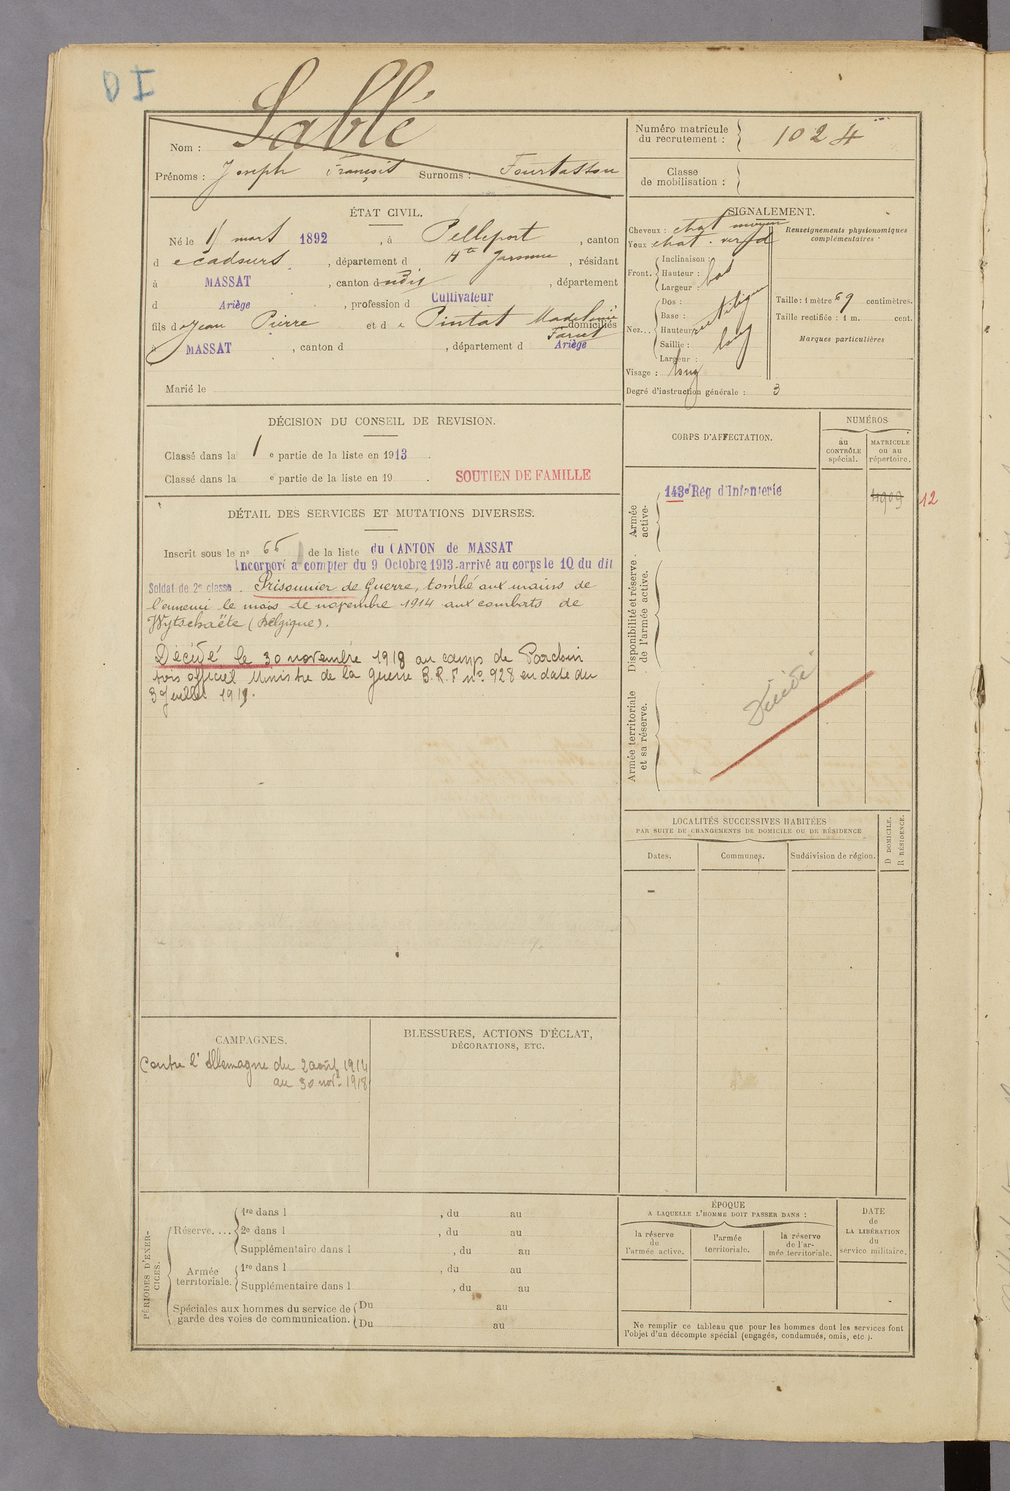 DI
Nom : Sablé
Prénoms : Joseph François Surnoms : Fourtassou
Numéro matricule du recrutement : 1024
Classe de mobilisation :
ÉTAT CIVIL.
Né le 1 mars 1892, à Pelleport, canton
d e cadours, département d Hte Garonne, résidant
à MASSAT, canton d udit, département
d Ariège, profession d Cultivateur
fils d e Jean Pierre et d e Pintat Madeleine domiciliés
à MASSAT, canton d , département d Ariège
Marié le
SIGNALEMENT.
Cheveux : chat moyen
Yeux chat. verd
Front. Inclinaison :
Hauteur : bas
Largeur :
Nez... Dos : rectiligne
Base :
Hauteur
Saillie : long
Largeur :
Visage : long
Degré d'instruction générale : 3
Renseignements physionomiques complémentaires :
Taille : 1 mètre 69 centimètres.
Taille rectifiée : 1 m. cent.
Marques particulières
DÉCISION DU CONSEIL DE REVISION.
Classé dans la 1 e partie de la liste en 1913
Classé dans la e partie de la liste en 19 .
SOUTIEN DE FAMILLE
DÉTAIL DES SERVICES ET MUTATIONS DIVERSES.
Inscrit sous le no 66 de la liste du CANTON de MASSAT
Incorporé à compter du 9 Octobre 1913-arrivé au corps le 10 du dit
Soldat de 2e classe. Prisonnier de Guerre, tombé aux mains de
l'ennemi le mois de novembre 1914 aux combats de
Wytschaëte (Belgique).
Décédé le 30 novembre 1918 au camps de Parchim
avis officiel Ministre de la guerre B.R.F no. 928 en date du
3 Juillet 1919.
CORPS D'AFFECTATION.
NUMÉROS
au CONTRÔLE spécial.
MATRICULE ou au répertoire.
Armée active.
143e Reg d'Infanterie
4909 12
Disponibilité et réserve de l'armée active.
Armée territoriale et sa réserve.
Décédé
LOCALITÉS SUCCESSIVES HABITÉES
PAR SUITE DE CHANGEMENTS DE DOMICILE OU DE RÉSIDENCE
Dates.
Communes.
Subdivision de région.
D DOMICILE.
R RÉSIDENCE.
CAMPAGNES.
Contre l'Allemagne du 2 août 1914
au 30 nov. 1918
BLESSURES, ACTIONS D'ÉCLAT,
DÉCORATIONS, ETC.
PÉRIODES D'EXERCICES.
Réserve.... 1re dans l , du au
2e dans l , du au
Supplémentaire dans l , du au
Armée territoriale. 1re dans l , du au
Supplémentaire dans l , du au
Spéciales aux hommes du service de garde des voies de communication. Du au
Du au
ÉPOQUE
A LAQUELLE L'HOMME DOIT PASSER DANS :
la réserve de l'armée active.
l'armée territoriale.
la réserve de l'armée territoriale.
DATE de LA LIBÉRATION du service militaire.
Ne remplir ce tableau que pour les hommes dont les services font
l'objet d'un décompte spécial (engagés, condamnés, omis, etc ).